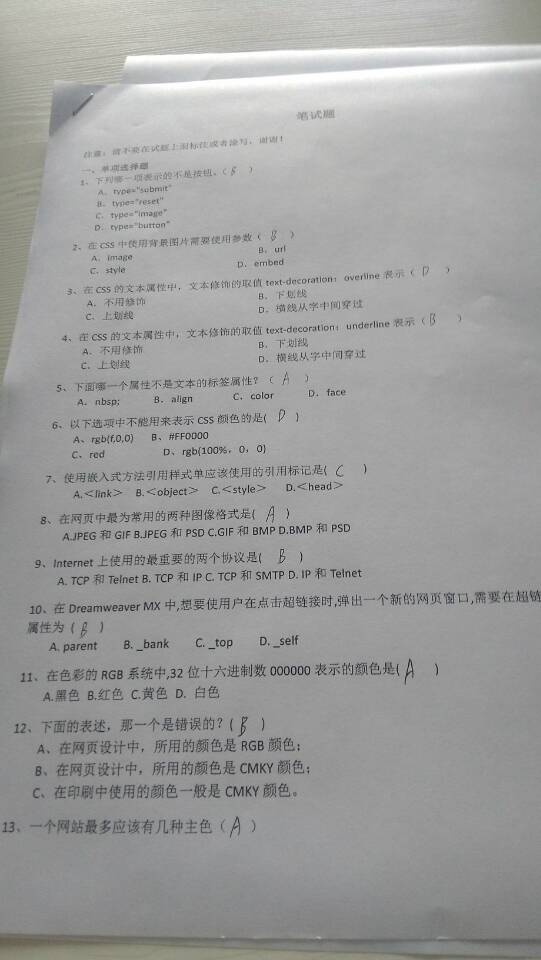 笔试题
注意：请不要在试题上面标注或者涂写，谢谢！
一、单项选择题
1、下列哪一项表示的不是按钮。（ B ）
A、type="submit"
B、type="reset"
C、type="image"
D、type="button"
2、在 CSS 中使用背景图片需要使用参数（ B ）
A、image B、url
C、style D、embed
3、在 CSS 的文本属性中，文本修饰的取值 text-decoration：overline 表示（ D ）
A、不用修饰 B、下划线
C、上划线 D、横线从字中间穿过
4、在 CSS 的文本属性中，文本修饰的取值 text-decoration：underline 表示（ B ）
A、不用修饰 B、下划线
C、上划线 D、横线从字中间穿过
5、下面哪一个属性不是文本的标签属性？（ A ）
A、nbsp; B、align C、color D、face
6、以下选项中不能用来表示 CSS 颜色的是( D )
A、rgb(f,0,0) B、#FF0000
C、red D、rgb(100%，0，0)
7、使用嵌入式方法引用样式单应该使用的引用标记是( C )
A.<link> B.<object> C.<style> D.<head>
8、在网页中最为常用的两种图像格式是( A )
A.JPEG 和 GIF B.JPEG 和 PSD C.GIF 和 BMP D.BMP 和 PSD
9、Internet 上使用的最重要的两个协议是( B )
A. TCP 和 Telnet B. TCP 和 IP C. TCP 和 SMTP D. IP 和 Telnet
10、在 Dreamweaver MX 中,想要使用户在点击超链接时,弹出一个新的网页窗口,需要在超链
属性为（ B ）
A. parent B. _bank C. _top D. _self
11、在色彩的 RGB 系统中,32 位十六进制数 000000 表示的颜色是( A )
A.黑色 B.红色 C.黄色 D. 白色
12、下面的表述，那一个是错误的？( B )
A、在网页设计中，所用的颜色是 RGB 颜色；
B、在网页设计中，所用的颜色是 CMKY 颜色；
C、在印刷中使用的颜色一般是 CMKY 颜色。
13、一个网站最多应该有几种主色（ A ）